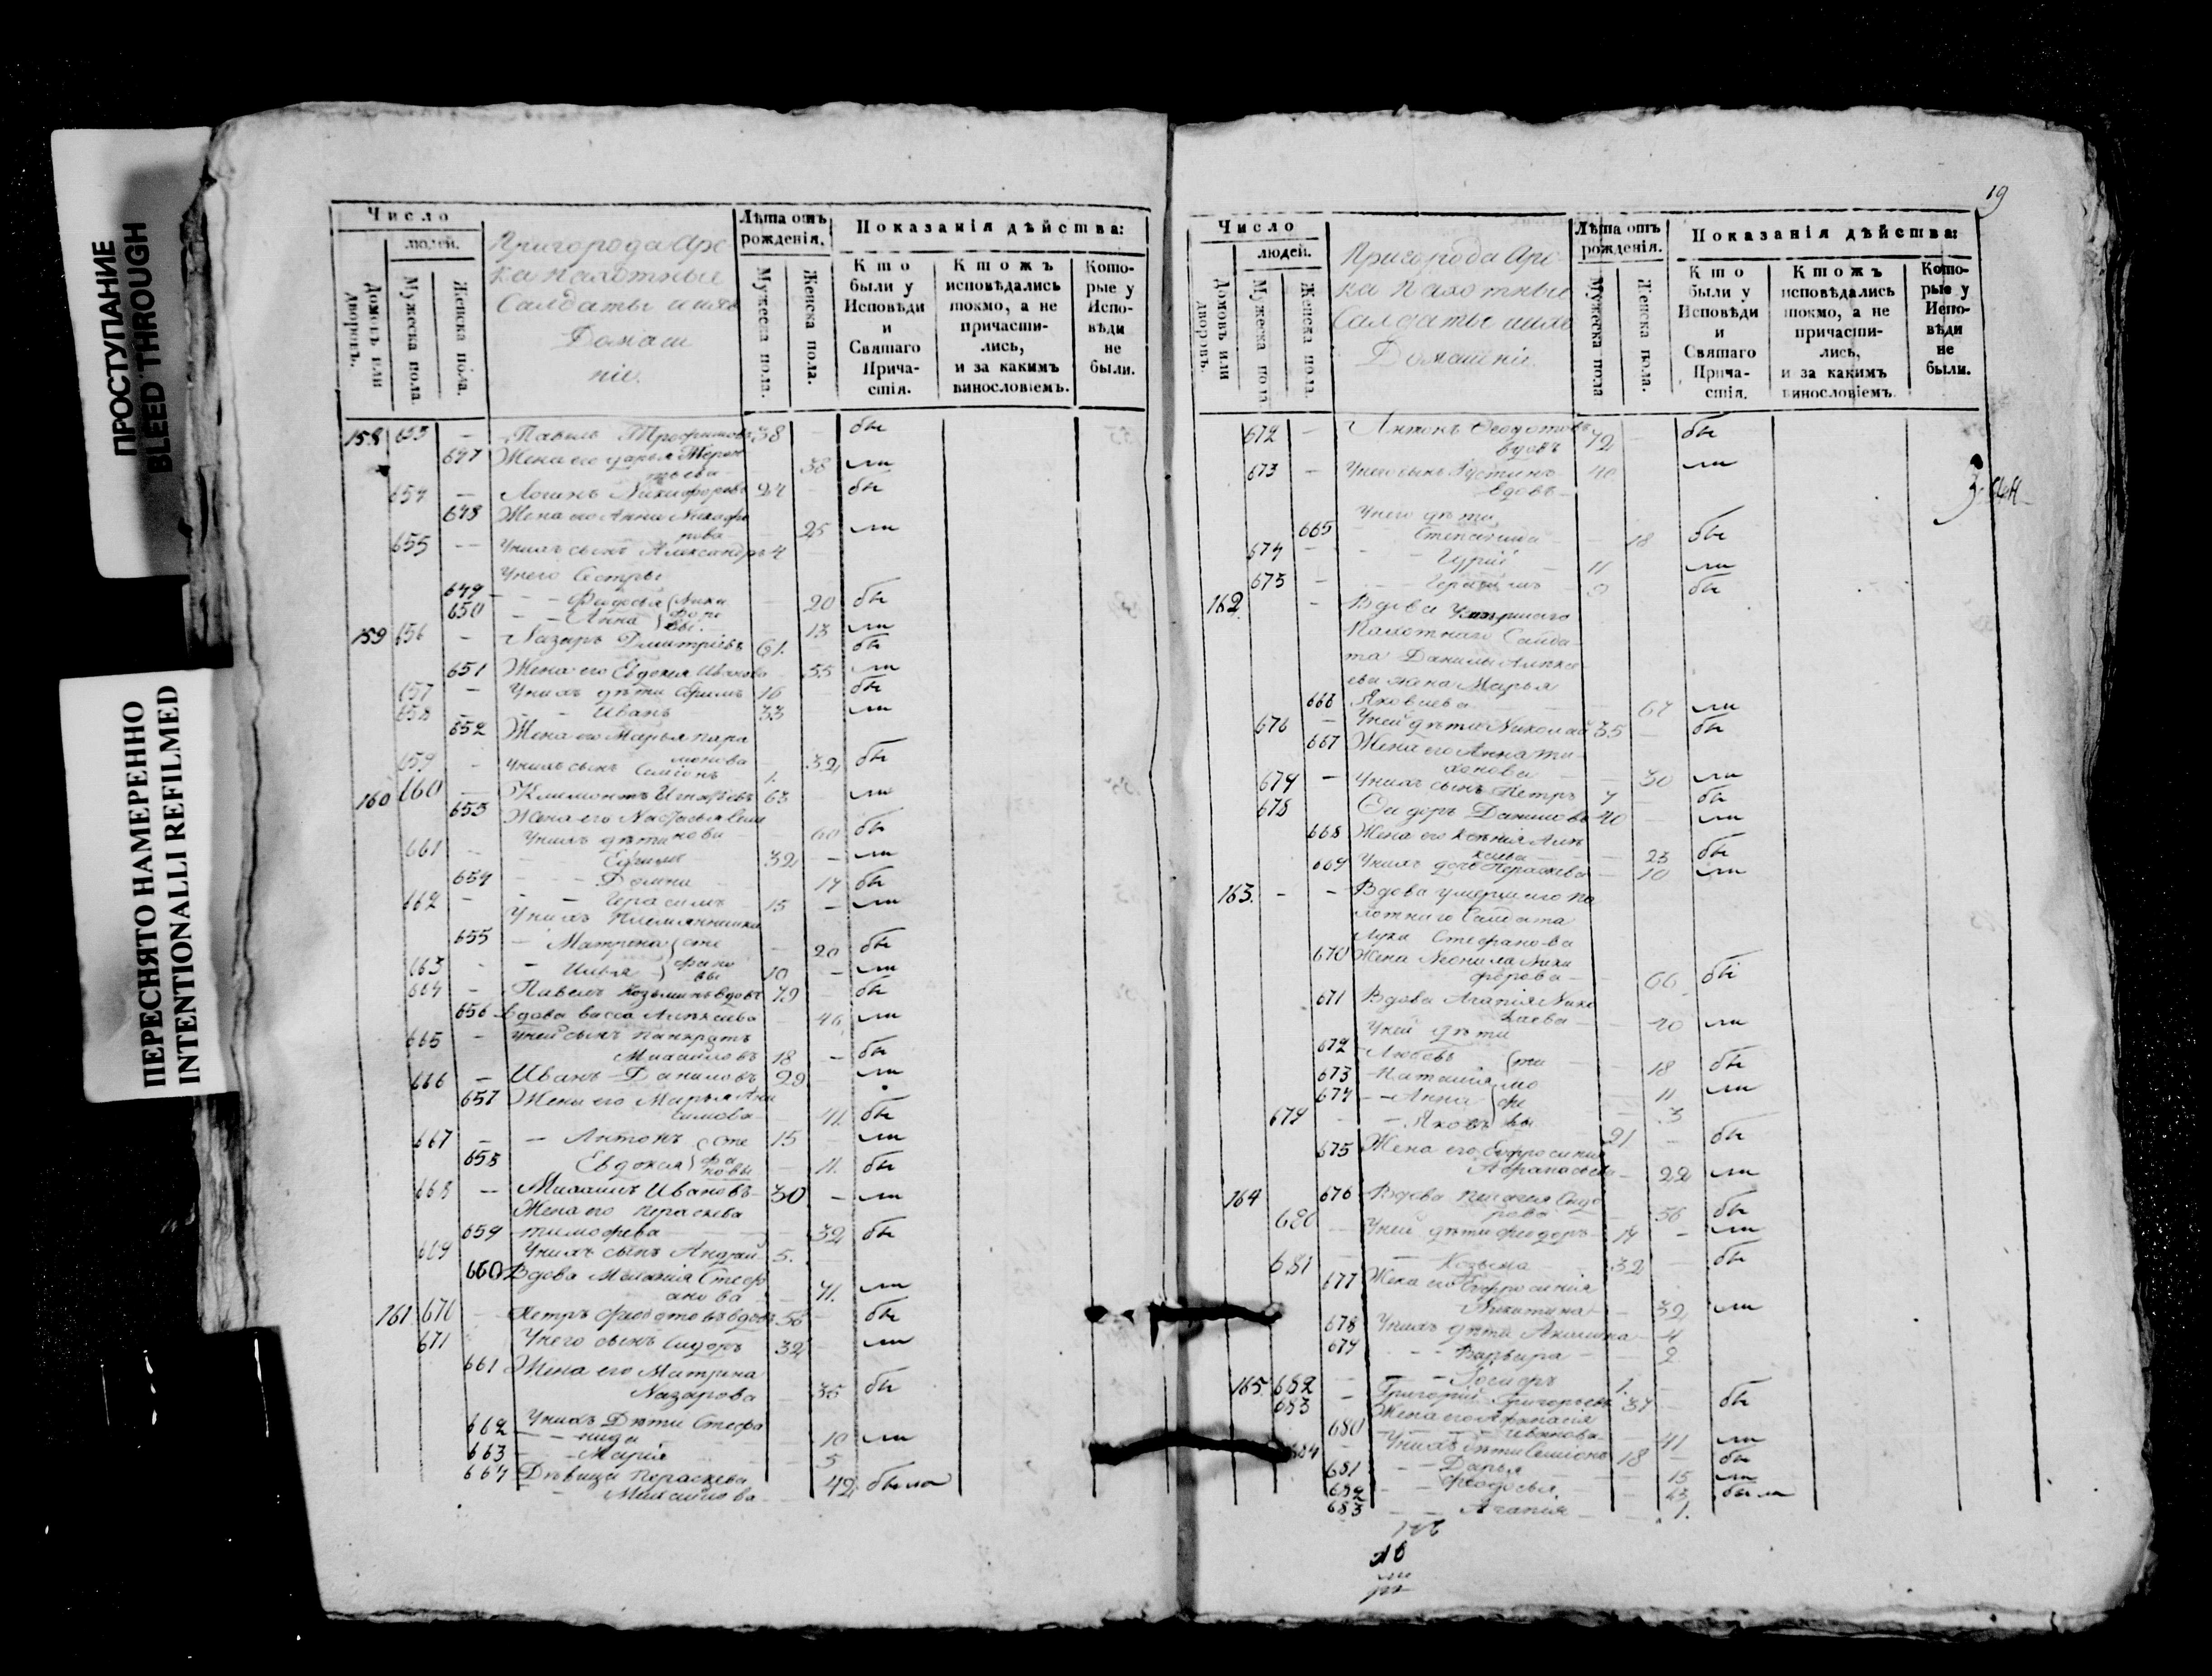 ПРОСТУПАНИЕ
BLEED THROUGH
ПЕРЕСНЯТО НАМЕРЕННО
INTENTIONALLI REFILMED
Число
людей.
Домовъ или дворовъ.
Мужеска пола.
Женска пола.
Пригорода Арс
ка пахотные
Салдаты и ихъ
Домаш
ніе.
Лѣта отъ рожденія.
Мужеска пола.
Женска пола.
Показанія дѣйства:
Кто были у Исповѣди и Святаго Причастія.
Ктожъ исповѣдались токмо, а не причастились, и за какимъ винословіемъ.
Которые у Исповѣди не были.
158 653 — Павелъ Трофимовъ 38 — бы
647 Жена его Дарья Терен
тьева — 38 ли
654 — Логинъ Никифоровъ 24 бы
648 Жена его Анна Никифо
рова 25 ли
655 — У нихъ сынъ Александръ 4
У него Сестры
649 — Федосья Ники 20 бы
650 — Анна форо вы 13 ли
159 656 — Лазарь Дмитріевъ 61. бы
651 Жена его Евдокия Иванова 55 ли
657 — У нихъ дѣти Ефимъ 16 бы
658 — Иванъ 33 ли
652 Жена его Марья пара
монова 32 бы
659 — У нихъ сынъ Семіонъ 1.
160 660 — Климонтъ Игнатьевъ 63 ли
653 Жена его Настасья Семи
нова 60 бы
У нихъ дѣти
661 — Ефимъ 32 — ли
654 — Домна 17 бы
662 — Герасимъ 15 — ли
У нихъ Племянники
655 — Матрона Сте 20 бы
663 — Илья фано вы 10 — ли
664 — Павелъ Козьминъ вдовъ 79 бы
656 вдова васса Алексѣева 46 ли
665 — У ней сынъ панкратъ
Михайловъ 18 — бы
666 — Иванъ Даниловъ 29 ли
657 Жена его Марья Ани
симова 41. бы
667 — Антонъ Сте 15 — ли
658 Евдокия фа новы 11. бы
668 — Михаилъ Ивановъ 30 — ли
Жена его Пераскева
659 тимофева 32 бы
669 У нихъ сынъ Андрей 5.
660 Вдова Маланія Стеф
анова 71. ли
161 670 — Петръ Федотовъ вдовъ 56 бы
671 У него сынъ Сидоръ 32 — ли
661 Жена его Матрина
Назарова 35 бы
662 У нихъ Дѣти Стефа
нида 10 ли
663 — Марія 5
664 Дѣвица Пераскева
Михайлова 42 была
19
Число
людей.
Домовъ или дворовъ.
Мужеска пола
Женска пола.
Пригорода Арс
ка пахотные
Салдаты и ихъ
Домашніе.
Лѣта отъ рожденія.
Мужеска пола
Женска пола.
Показанія дѣйства:
Кто были у Исповѣди и Святаго Причастія.
Ктожъ исповѣдались токмо, а не причастились, и за какимъ винословіемъ.
Которые у Исповѣди не были.
672 — Антонъ Феодотовъ
вдовъ 72 — бы
673 — У него сынъ Устинъ 40. ли
вдовъ
У него дѣти
665 Степанида 18 бы
674 — Гурій 11 ли
675 — Герасимъ 9 бы
162. — Вдова Умершаго
Пахотнаго Салда
та Данилы Алексѣ
ева жена Марья
666 Яковлева 67 ли
676 — У ней дѣти Николай 35 — бы
667 Жена его Анна ти
хонова 30 ли
677 — У нихъ сынъ Петръ 7 бы
678 Сидоръ Даниловъ 40 — ли
668 Жена его Ксенія Алек
сѣева 23 бы
669 У нихъ дочь Пераскева 10 ли
163. — — Вдова умершаго Па
хотнаго Салдата
Луки Стефанова
670 Жена Неонила Ники
форова 66 бы
671 Вдова Агапія Нико
лаева 40 ли
У ней дѣти
672 Любовь ти 18 бы
673 Наталия мо 11 ли
674 — Анна фе 3
679 — Яковъ вы 21. — бы
675 Жена его Ефросинія
Афанасьева 22 ли
164 676 Вдова Пелагея Сидо
рова 56 бы
680 У ней дѣти феодоръ 14 — ли
681 — Козьма 32 — бы
677 Жена его Ефросинія
Никитина 32 ли
678 У нихъ дѣти Акилина 4
679 — Варвара 2
682 — 1.
165. 683 — Григорій Григорьевъ 37 — бы
680 Жена его Афанасія
Иванова 41 ли
684 — У нихъ дѣти Семіонъ 18 — бы
681 — Дарья 15 ли
682 — Феодосья 13 была
683 — Агапія 1.